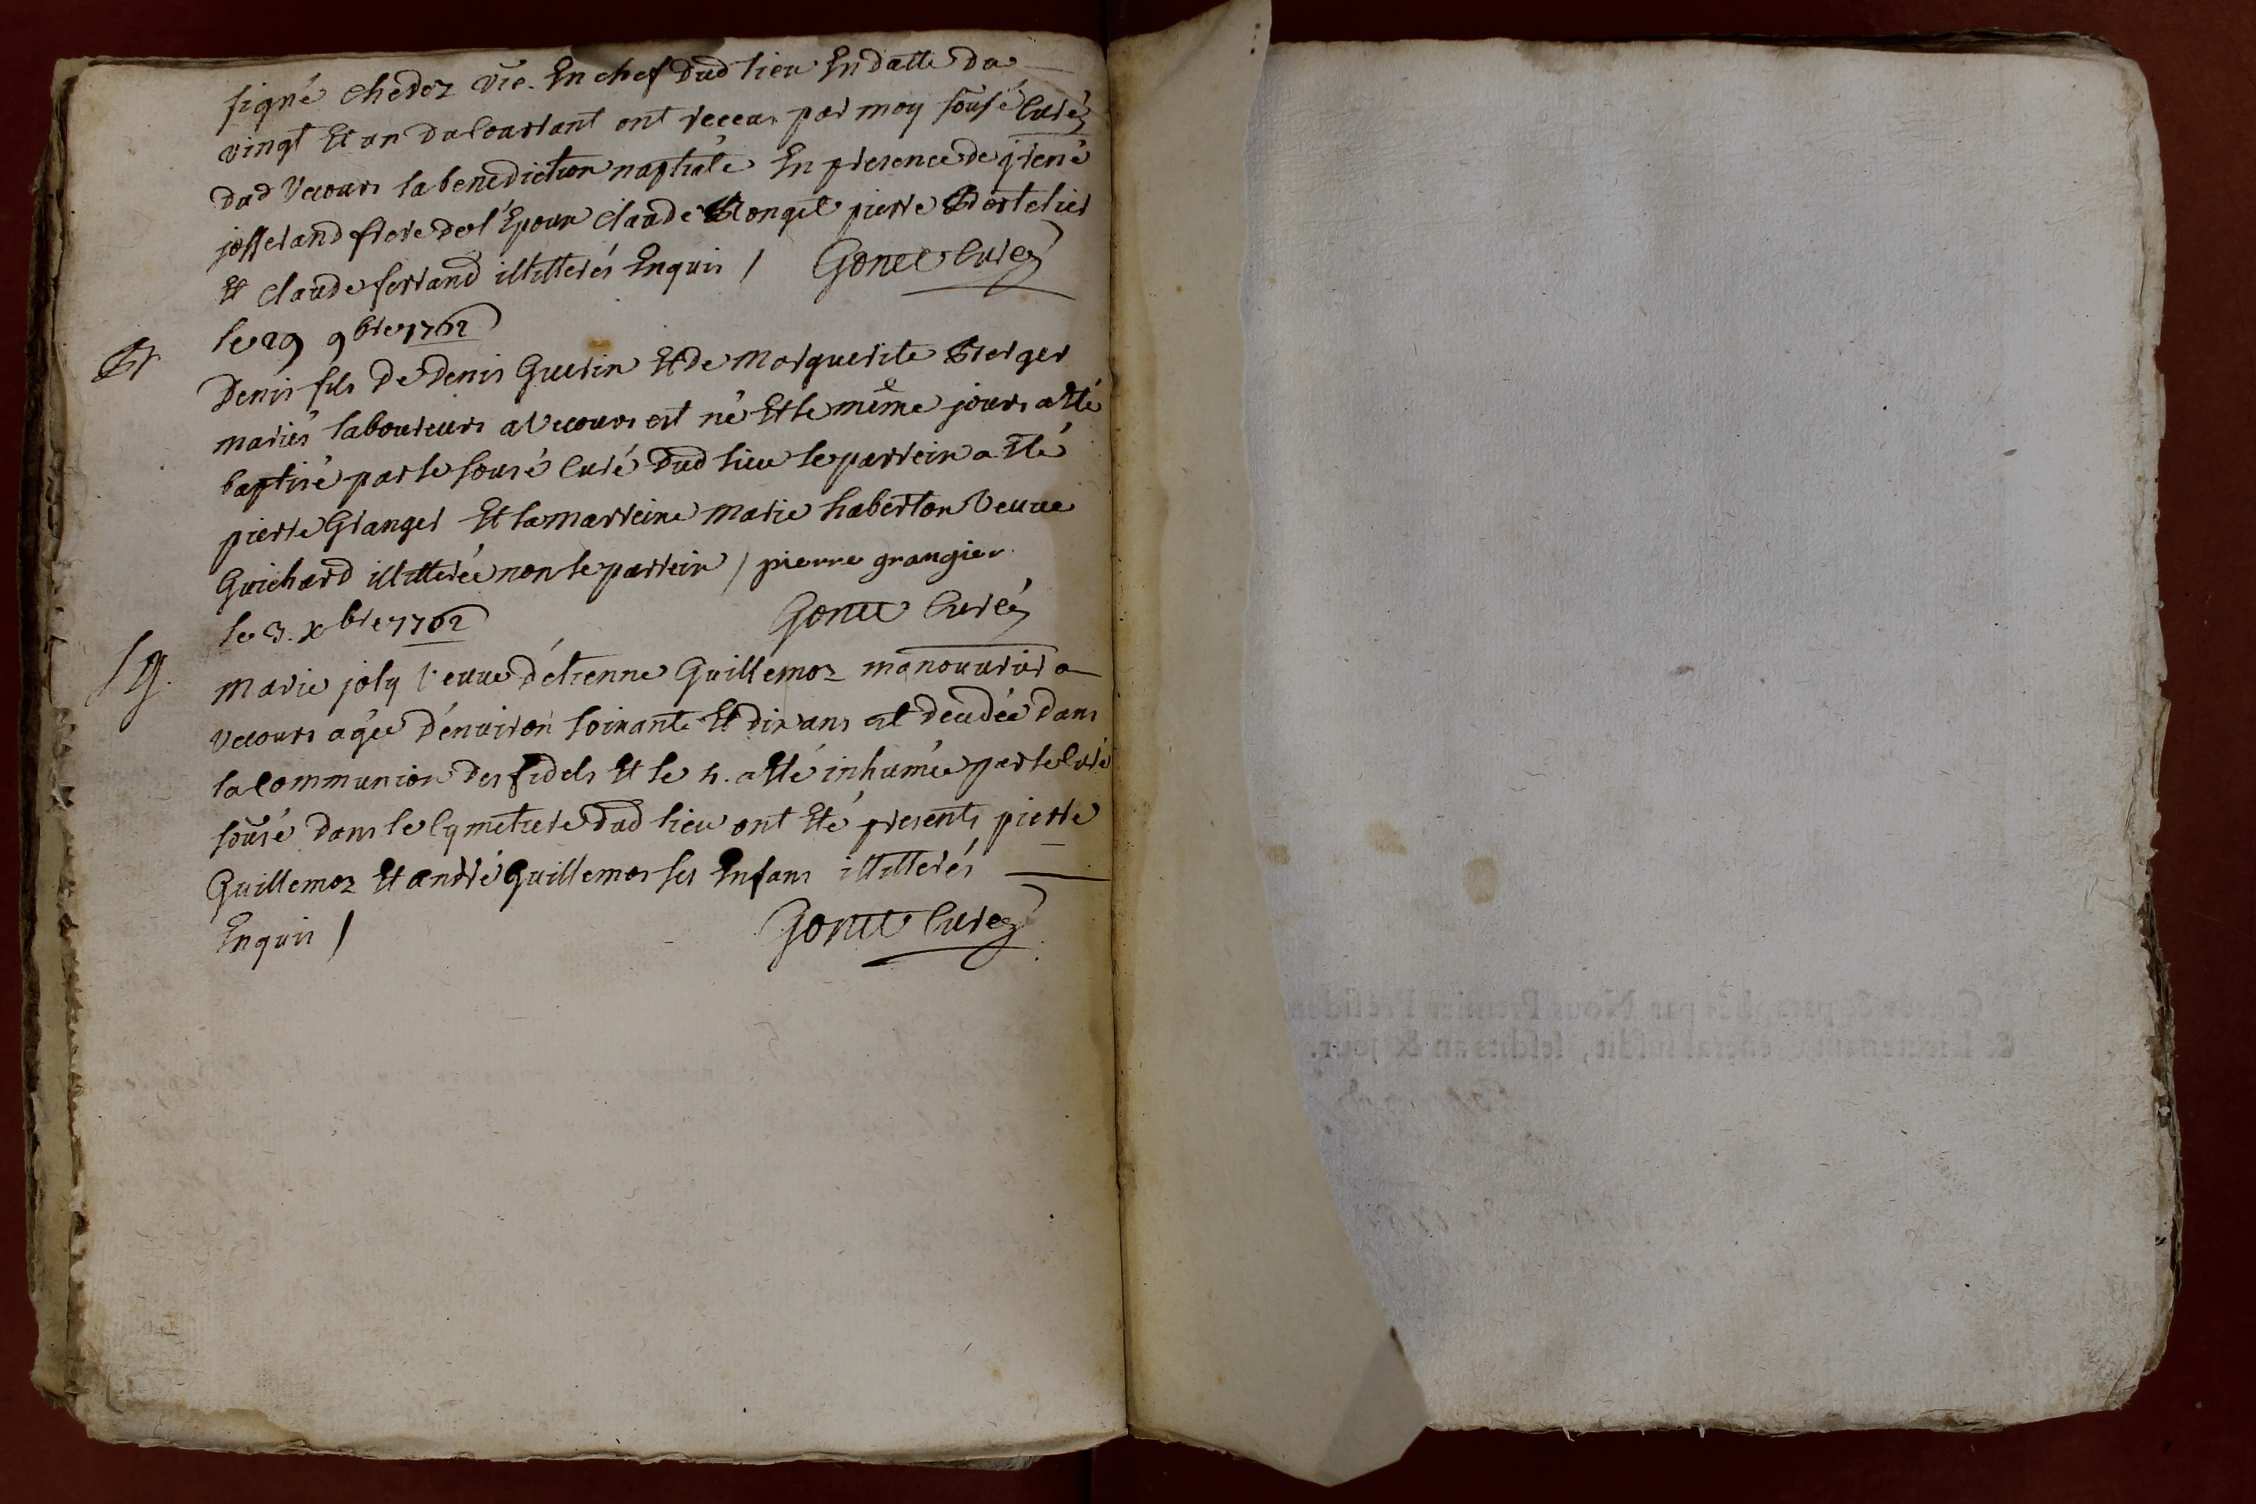 signé chedez vic. En chef dud lieu En datte du
vingt Et un du Courant ont receu par moy sousé Curé
dud Vecours la benediction nuptiale En presence de
josserand frere de l'Epoux Claude pierre Bertelier
Et Claude ferrand illitterés Enquis / Gonet Curé
le 29 9bre 1762
Bt Denis fils De Denis Guerin Et de Marguerite Berger
mariés laboureurs a Vecours est né Et le même jours a Eté
baptisé par le sousé Curé dud lieu le parrein a Eté
pierre Granger Et la marreine Marie haberton Veuve
Guichard illitterée non le parrein / pierre grangier
le 3. xbre 1762 Gonet Curé
Sg. Marie joly Veuve d'étienne Guillemoz manouvrier a
Vecours agée d'environ soixante Et dix ans est decedée dans
la Communion des fidels Et le 4. a Eté inhumée par le Curé
sousé dans le Cymetiere dud lieu ont Eté presents pierre
Guillemoz Et andré Guillemoz ses Enfans illitterés
Enquis / Gonet Curé
par Nous Premier Président
& Lieutenant Général susdit, lesdits an & jour.